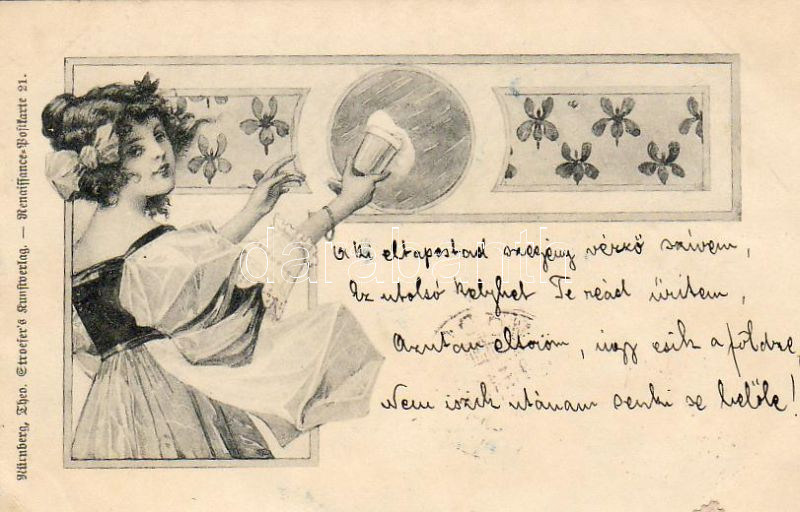 Nürnberg, Theo. Stroefer's Kunstverlag. — Renaissance-Postkarte 21.
A ki eltapostad szegény vérző szívem,
Ez utolsó kelyhet Te reád ürítem,
Azután eltöröm, úgy esik a földre,
Nem iszik utánam senki se belőle!
darabanth